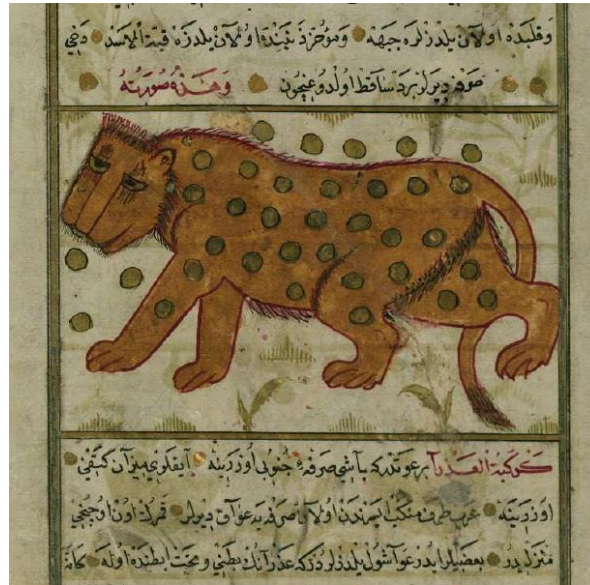 وقلبده اولان يلدزلره جبهه ومؤخرند ... اولان يلدزه قبة الاسد دخي
صرفه ديرلر برد ساقط اولدوغيچون وهذه صورته
كوكبة العذرآ بر عوتدركه باشي صرفه جنوبى اوزرينه اياقلرى ميزان كفتى
اوزرينه عرب طرف منكب ايسرندن اولان صرفه يه عوآ ديرلر قمرك اون اوچنجى
منزليدر بعضيلر ايدر عوآ شول يلدزلردركه عذرآنك بطنى وتحت ابطنده اوله كانه